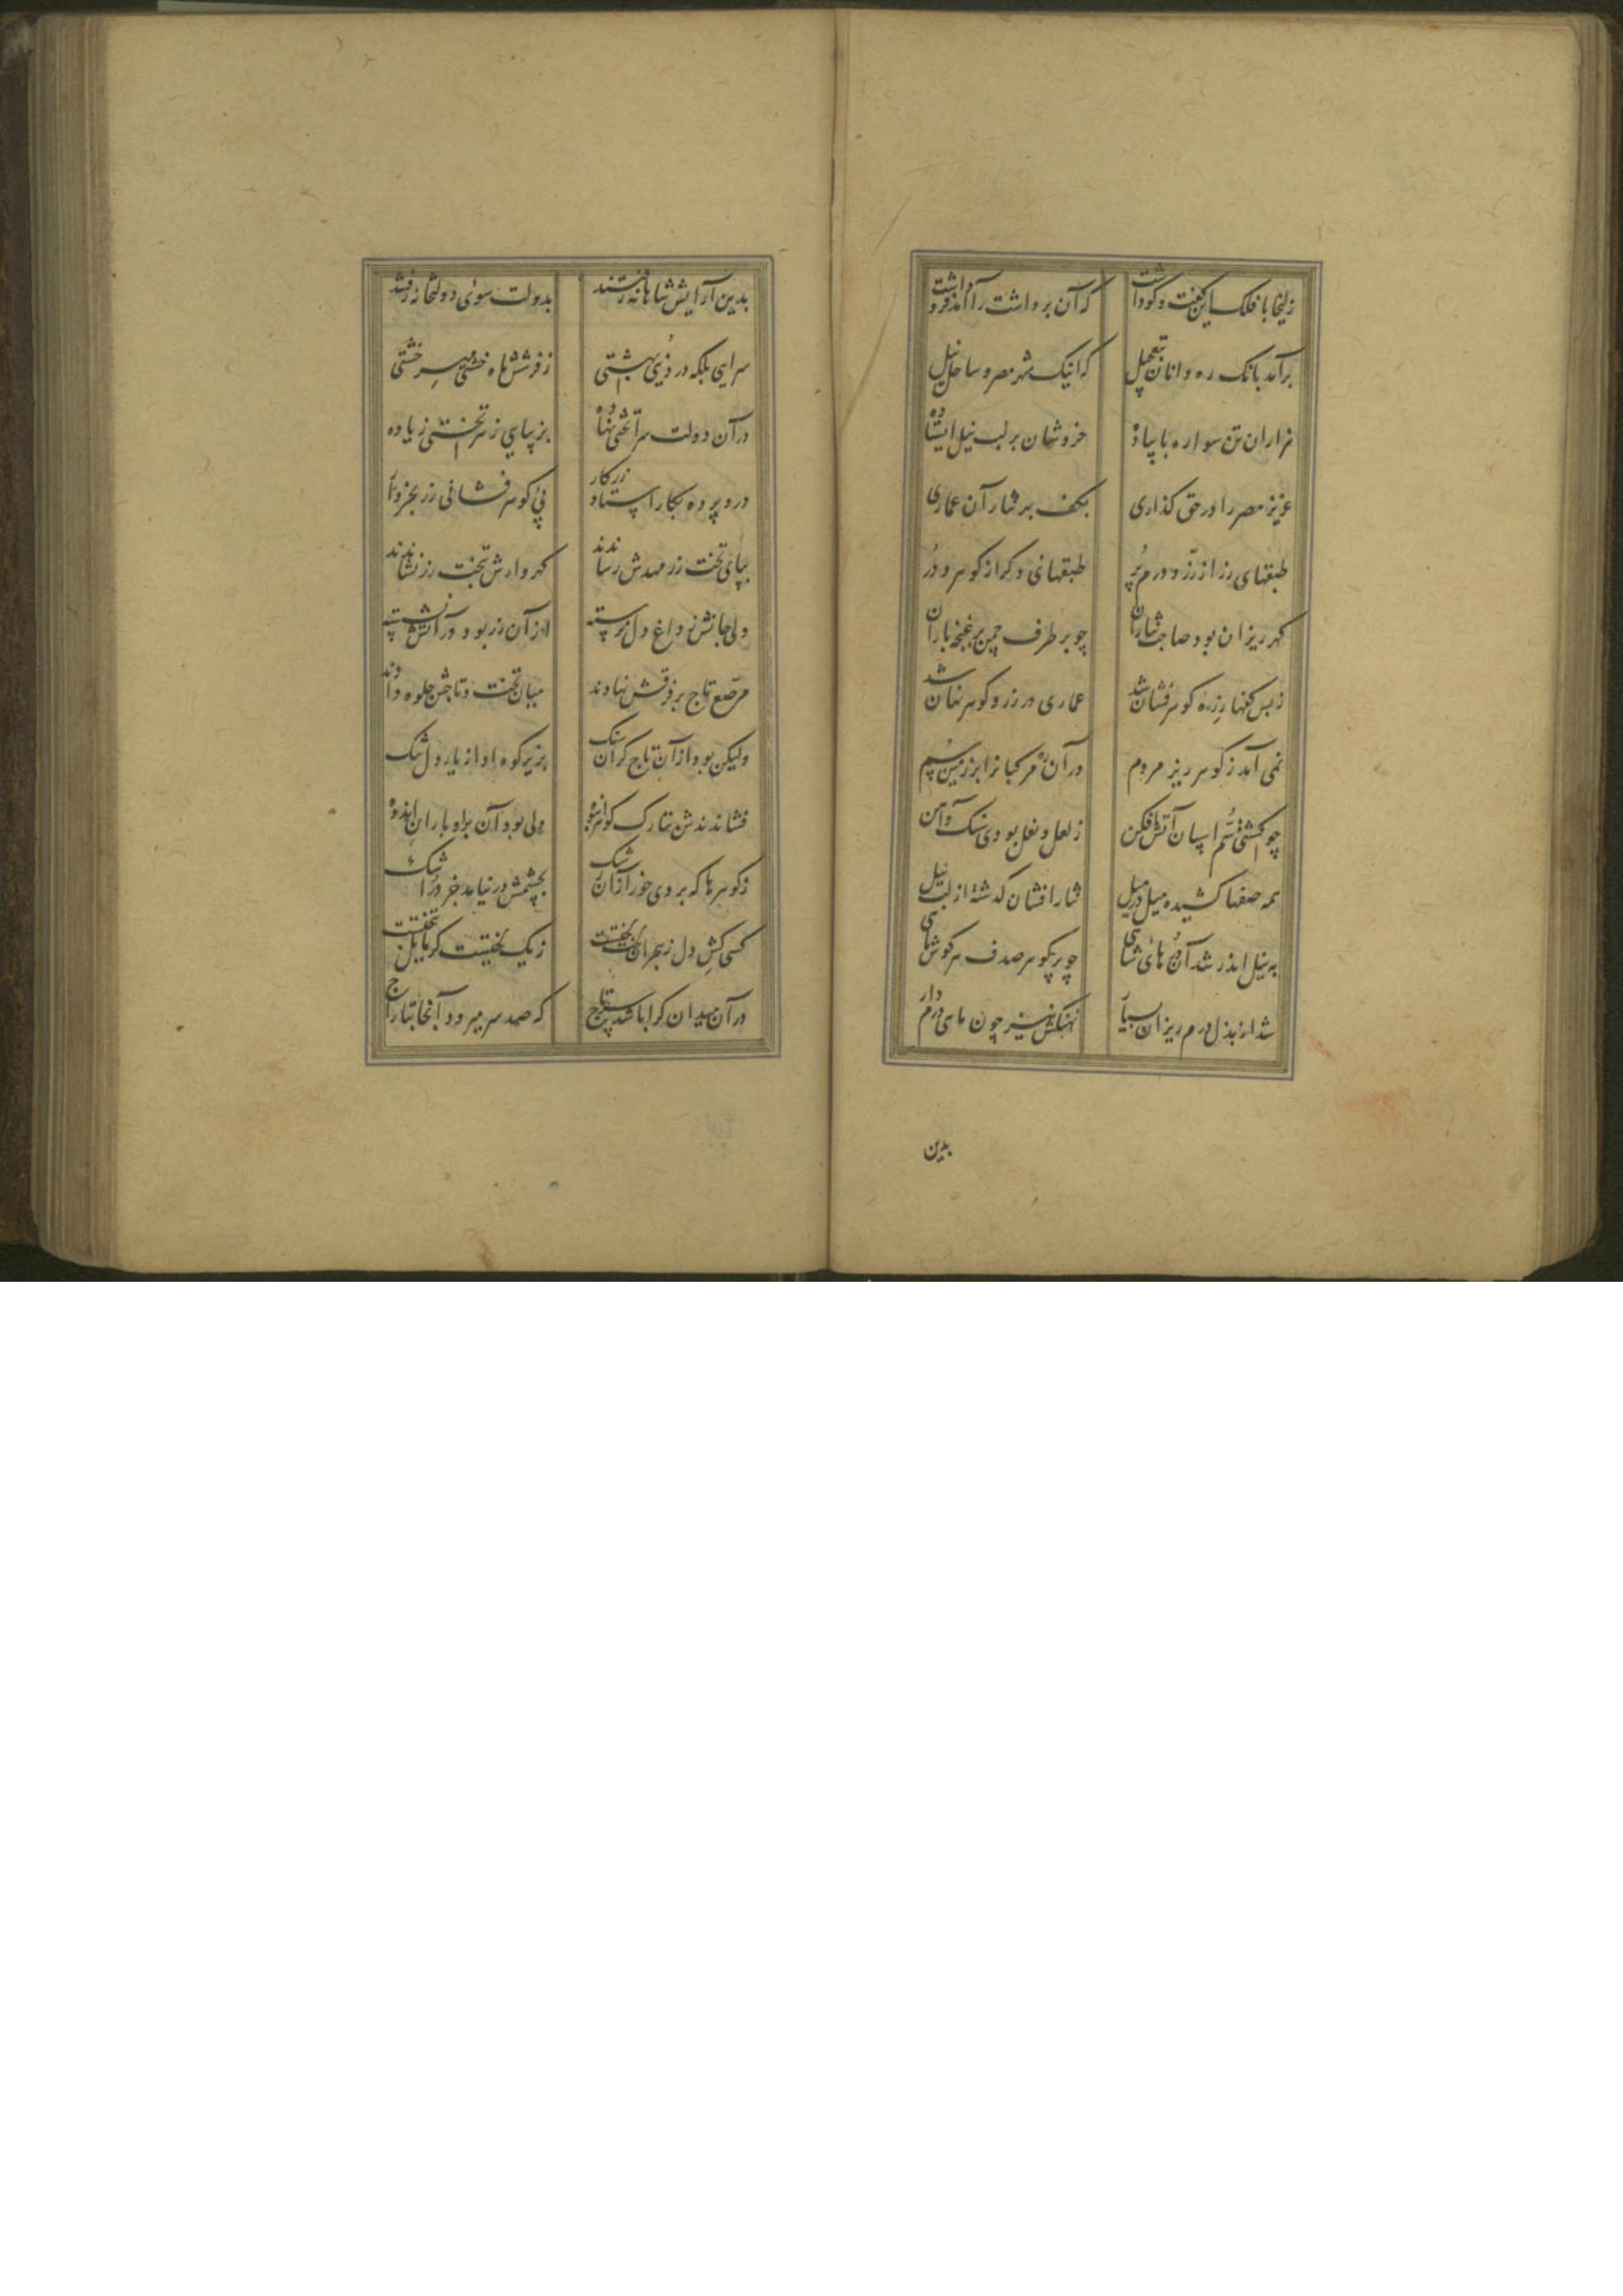 زلیخا با فلک این گفت و گو داشت
که آن برداشت را آمد فرو داشت
برآمد بانک ره دانان بتعجیل
که اینک شهر مصر و ساحل نیل
هزاران تن سواره با پیاده
خروشان بر لب نیل ایستاده
عزیز مصر را در حق کذاری
بکف بر نثار آن عماری
طبقهای زر از زر و درم پر
طبقهای دکر از کوهر و در
کهر ریزان برو صاحب نثاران
چو بر طرف چمن بر غنچه باران
ز بس کفها زر و کوهر فشان شد
عماری در زر و کوهر نهان شد
نمی آمد ز کوهر ریز مردم
در آن ره مرکبانرا بر زمین سم
چو کشتی سم اسپان آتش افکن
ز لعل و نعل بودی سنک و آهن
همه صفها کشیده میل در میل
نثار افشان کذشته از لب نیل
به نیل اندر شد آن درهای شاهی
چو پر کوهر صدف هر کوش ماهی
شد از بذل درم ریزان بسیار
نهنکش نیز چون ماهی درم دار
بدین
بدین آرایش شاهانه رفتند
بدولت سوی دولتخانه رفتند
سرایی بلکه در دنیی بهشتی
ز فرشش ماه خشتی مهر خشتی
در آن دولت سرا تختی نهاده
بزیبایی ز هر تختی زیاده
درو پرده بکار استاد زرکار
پی کوهر فشانی زر بخروار
بپای تخت زر مهدش رساندند
کهروارش بتخت زر نشاندند
ولی جانش ز داغ دل نرسته
از آن زر بود در آتش نشسته
مرصع تاج بر فرقش نهادند
میان تخت و تاجش جلوه دادند
ولیکن بود از آن تاج کران سنک
بزیر کوه او از بار دل تنک
فشاندندش بتارک کوهر انبوه
ولی بود آن برو باران اندوه
ز کوهرها که بردی حور از آن رشک
بچشمش در نیامد جز در اشک
کسی کش دل ز هجران لخت لختست
ز یک لختیست کو مایل بتختست
در آن میدان کرا باشد سر تاج
که صد سر میرود آنجا بتاراج